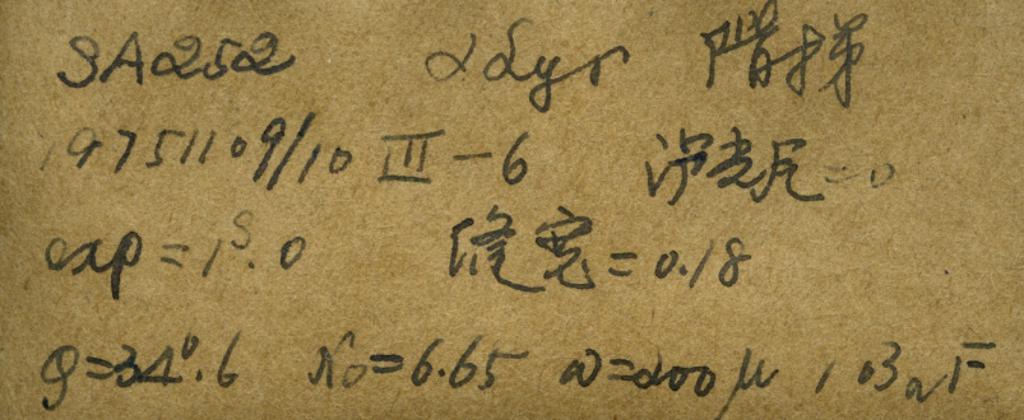 SA252 α Lyr 階梯
19751109/10 III-6 滤光尺=0
exp=1ˢ.0 缝宽=0.18
φ=34°.6 X₀=6.65 ω=200μ, 103aF